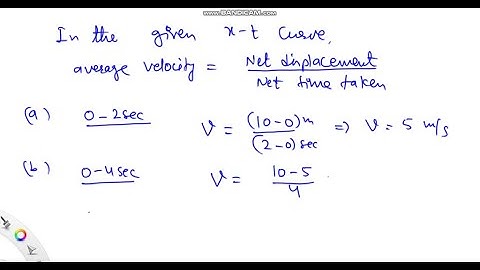 www.BANDICAM.com
In the given x-t curve,
average velocity = Net displacement / Net time taken
(a) 0-2sec V = (10-0)m / (2-0)sec ⇒ V = 5 m/s
(b) 0-4sec V = 10-5 / 4